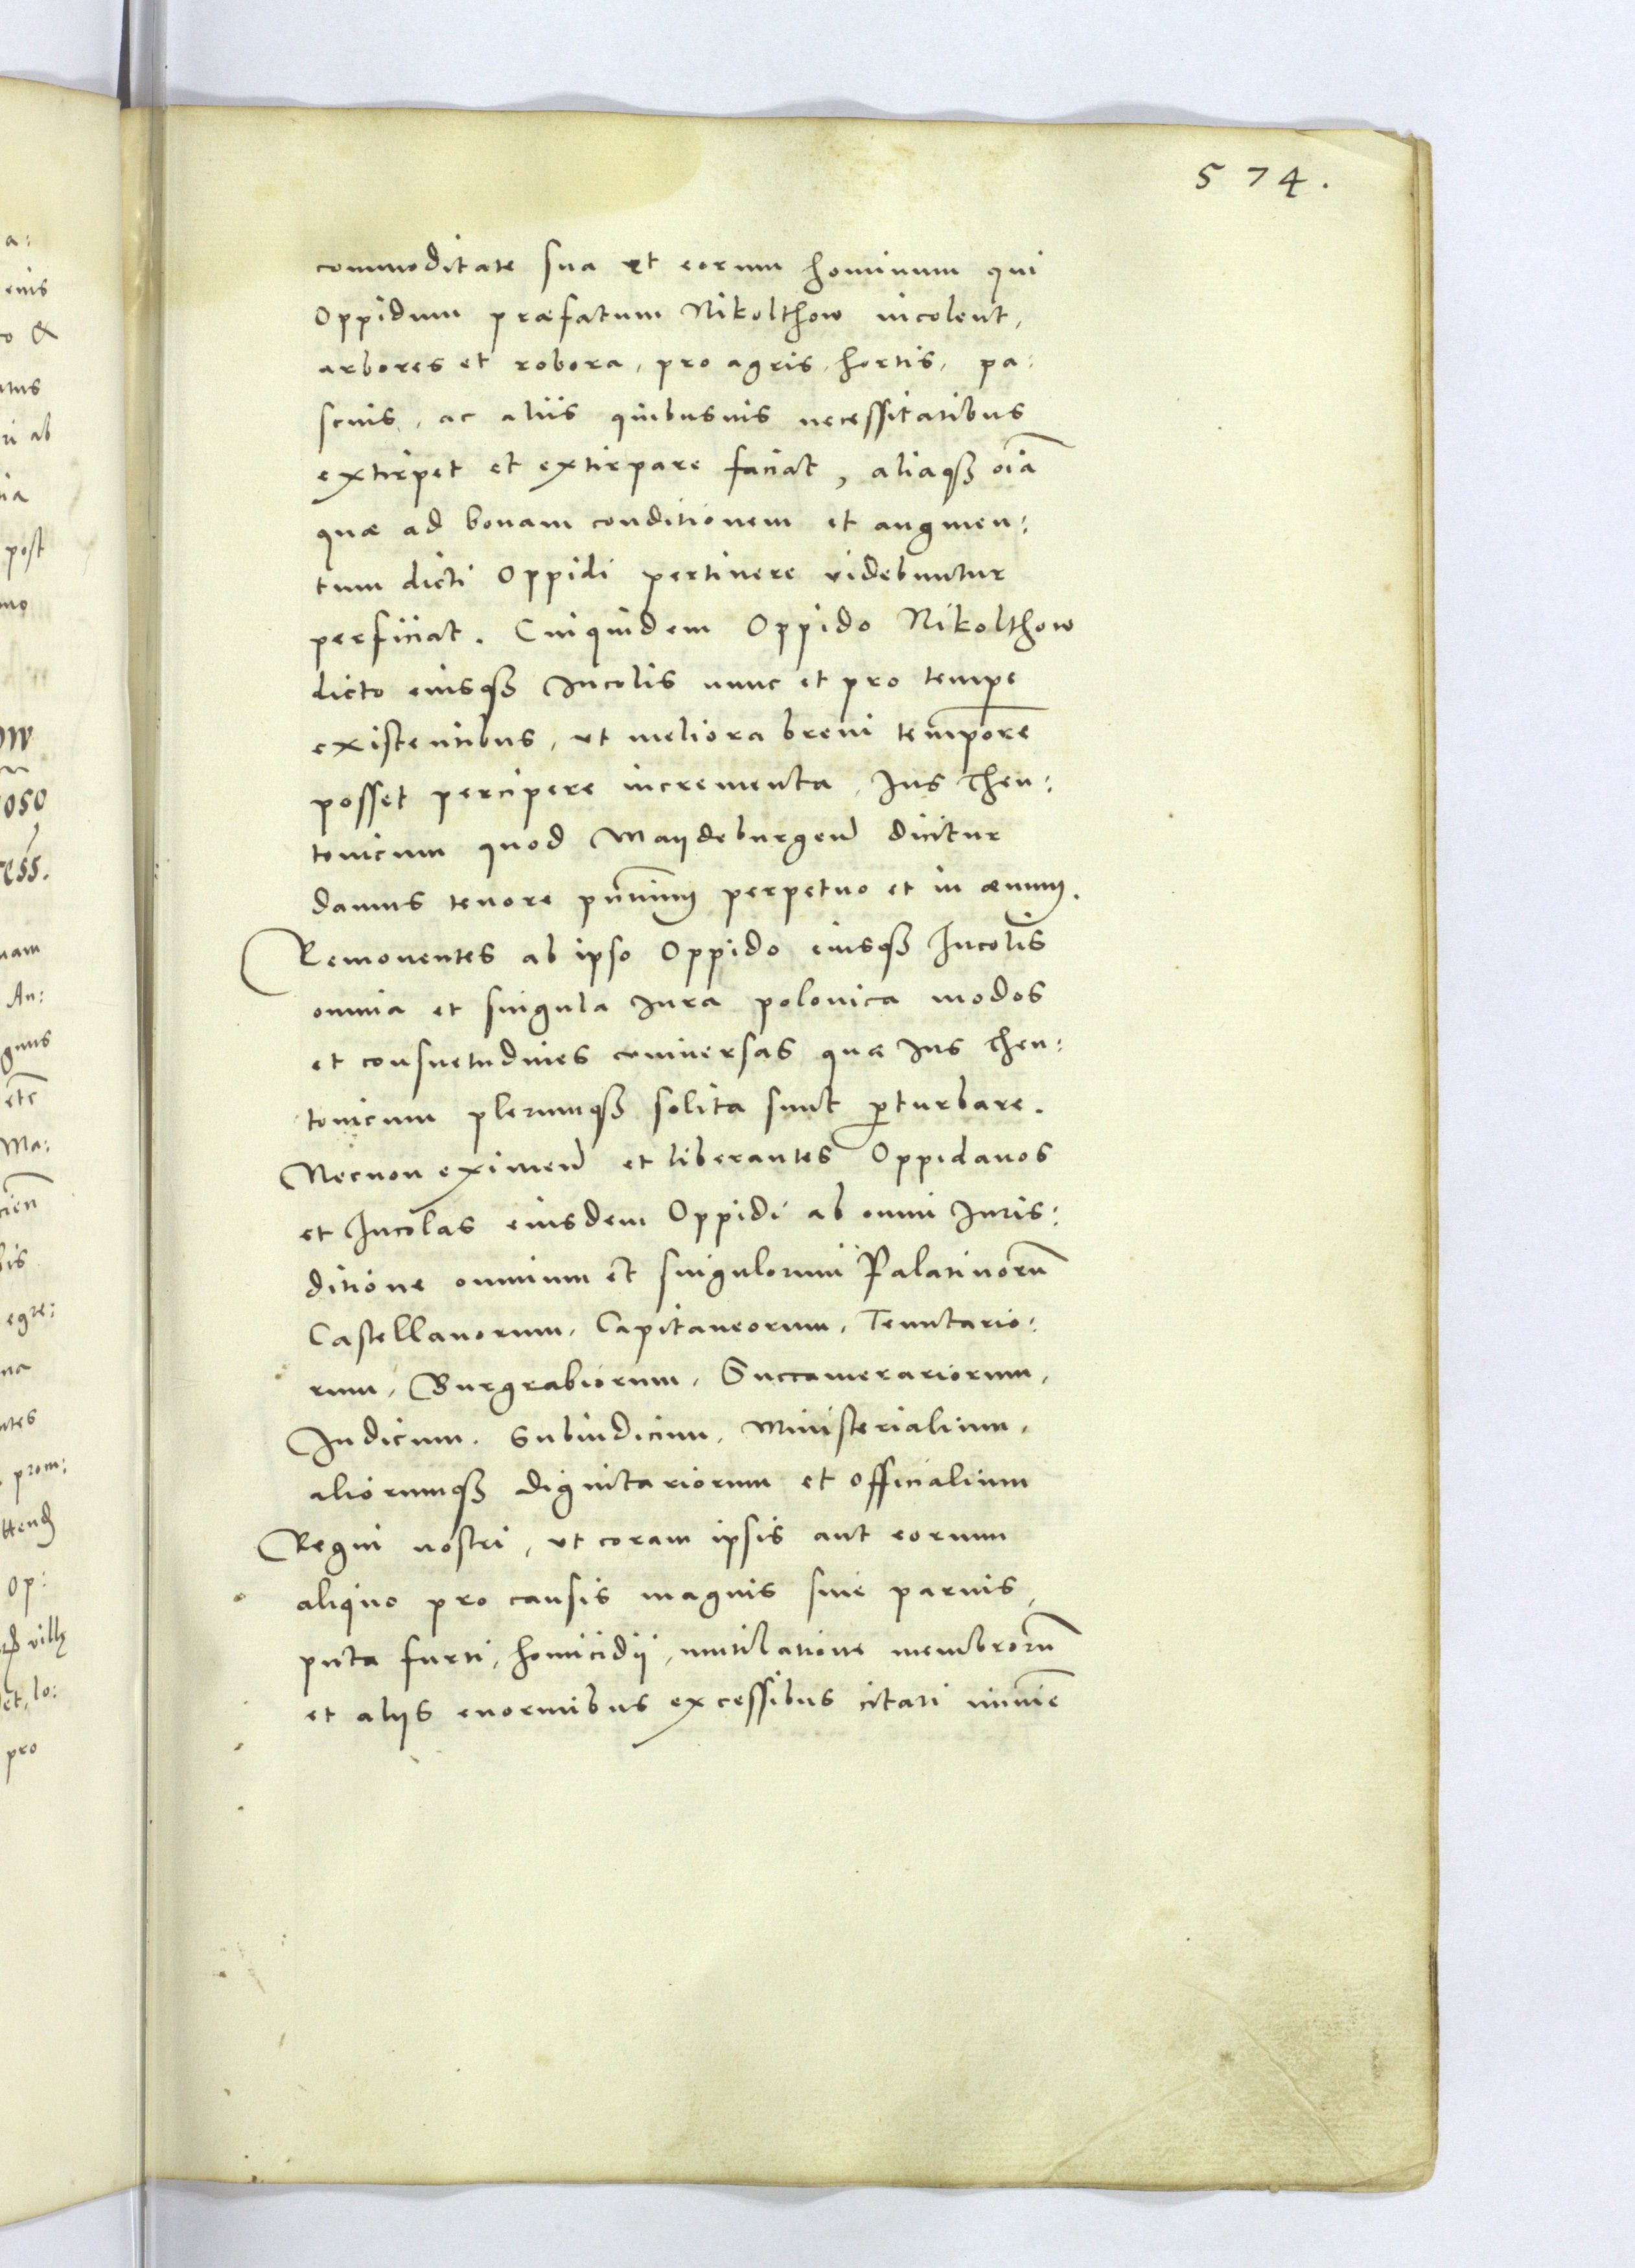 574.
commoditate sua et eorum hominum qui
Oppidum præfatum Nikolthow incolent,
arbores et robora, pro agris, hortis, pa:
scuis, ac aliis quibusuis necessitatibus
extirpet et extirpare faciat, aliaqꝫ oīa
quæ ad bonam conditionem et augmen:
tum dicti Oppidi pertinere videbuntur
perficiat. Cuiquidem Oppido Nikolthow
dicto eiusqꝫ Incolis nunc et pro tempe
existentibus, ut meliora breui tempore
posset percipere incrementa, Jus Theu:
tonicum quod Maydeburgen dicitur
damus tenore pñtium perpetuo et in æuum.
Remouentes ab ipso Oppido eiusqꝫ Incolis
omnia et singula iura polonica modos
et consuetudines vniuersas quæ ius Theu:
tonicum plerumqꝫ solita sunt ꝑturbare.
Necnon eximen et liberantes Oppidanos
et Incolas eiusdem Oppidi ab omni Juris:
ditione omnium et singulorum Palatinorū
Castellanorum, Capitaneorum, Tenutario:
rum, Burgrabiorum, Succamerariorum,
Judicum. Subiudicum, Ministerialium,
aliorumqꝫ dignitariorum et officialium
Regni nostri, ut coram ipsis aut eorum
aliquo pro causis magnis siue paruis,
puta furti, homicidij, mutilatione membrorū
et alijs enormibus excessibus citati minime
a:
enis
co &
ri ab
post
oso
ress.
nam
An:
gnus
etc
Ma:
bis
egre:
na
ntes
prom:
Op:
lo:
pro